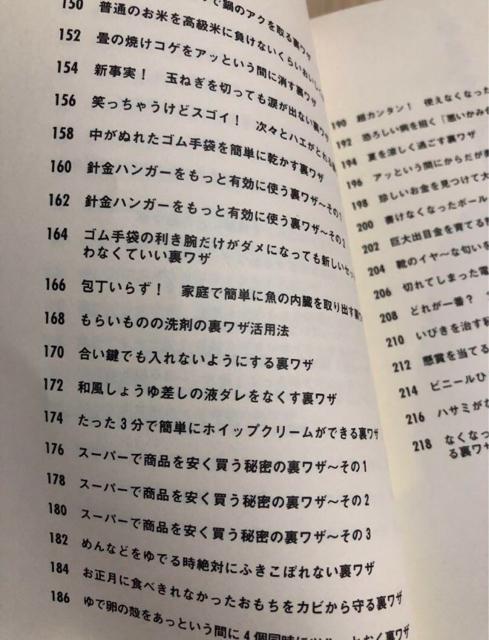 で鍋のアクを取る裏ワザ
150 普通のお米を高級米に負けないくらいおいし
152 畳の焼けコゲをアッという間に消す裏ワザ
154 新事実！ 玉ねぎを切っても涙が出ない裏ワザ
156 笑っちゃうけどスゴイ！ 次々とハエがとれ
158 中がぬれたゴム手袋を簡単に乾かす裏ワザ
160 針金ハンガーをもっと有効に使う裏ワザ〜その1
162 針金ハンガーをもっと有効に使う裏ワザ〜その2
164 ゴム手袋の利き腕だけがダメになっても新しいセッ
わなくていい裏ワザ
166 包丁いらず！ 家庭で簡単に魚の内臓を取り出す裏
168 もらいものの洗剤の裏ワザ活用法
170 合い鍵でも入れないようにする裏ワザ
172 和風しょうゆ差しの液ダレをなくす裏ワザ
174 たった3分で簡単にホイップクリームができる裏ワザ
176 スーパーで商品を安く買う秘密の裏ワザ〜その1
178 スーパーで商品を安く買う秘密の裏ワザ〜その2
180 スーパーで商品を安く買う秘密の裏ワザ〜その3
182 めんなどをゆでる時絶対にふきこぼれない裏ワザ
184 お正月に食べきれなかったおもちをカビから守る裏ワザ
186 ゆで卵の殻をあっという間に4個同時に 裏ワザ
190 超カンタン！ 使えなくなった
192 恐ろしい病を招く「悪いかみ
194 夏を涼しく過ごす裏ワザ
196 アッという間にからだが
198 珍しいお金を見つけて大
200 書けなくなったボール
202 巨大出目金を育てる
204 靴のイヤ〜な匂いを
206 切れてしまった電
208 どれが一番？
210 いびきを治す
212 懸賞を当てる
214 ビニールひ
216 ハサミがな
218 なくなっ
る裏ワザ